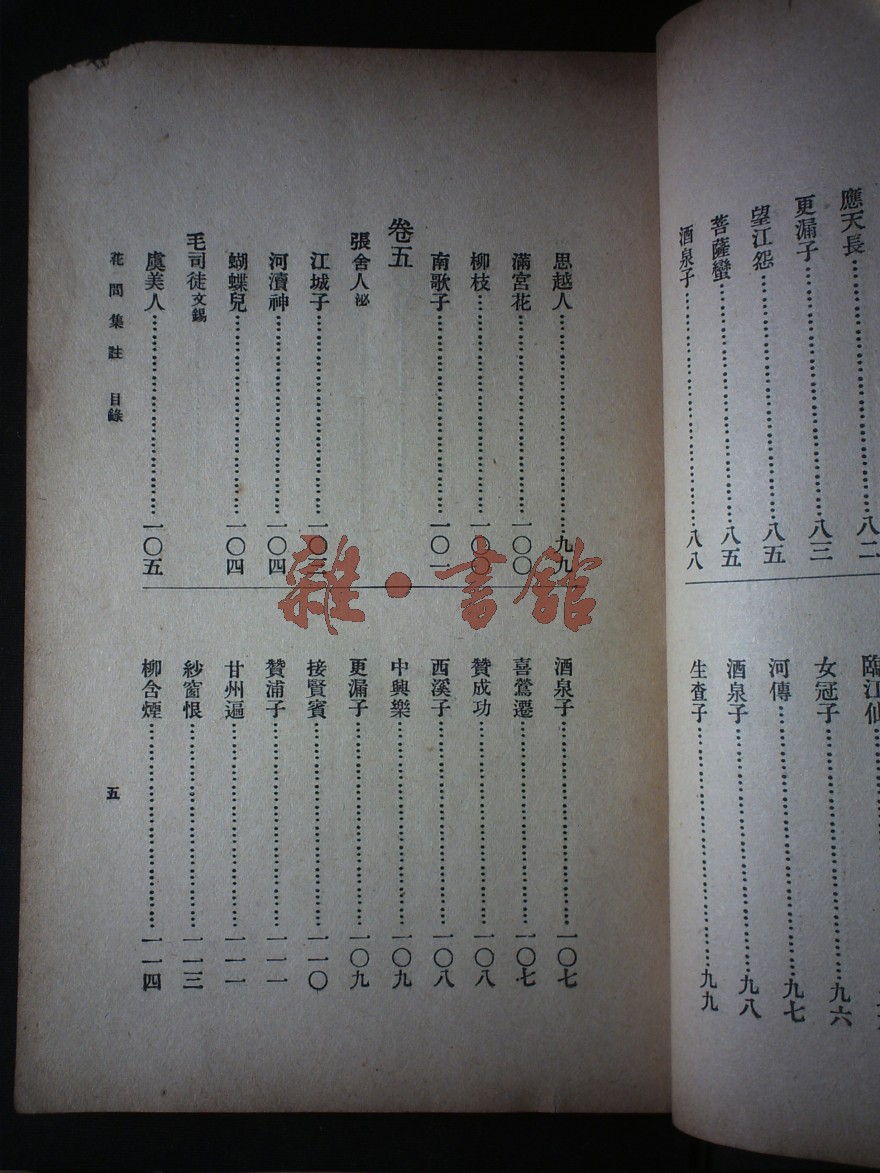 應天長……八二
更漏子……八三
望江怨……八五
菩薩蠻……八五
酒泉子……八八
臨江仙
女冠子……九六
河傳……九七
酒泉子……九八
生查子……九九
思越人……九九
滿宮花……一〇〇
柳枝……一〇〇
南歌子……一〇一
卷五
張舍人泌
江城子……一〇三
河瀆神……一〇四
蝴蝶兒……一〇四
毛司徒文錫
虞美人……一〇五
酒泉子……一〇七
喜鶯遷……一〇七
贊成功……一〇八
西溪子……一〇八
中興樂……一〇九
更漏子……一〇九
接賢賓……一一〇
贊浦子……一一一
甘州遍……一一一
紗窗恨……一一三
柳含煙……一一四
花間集註 目錄
五
雜·書館